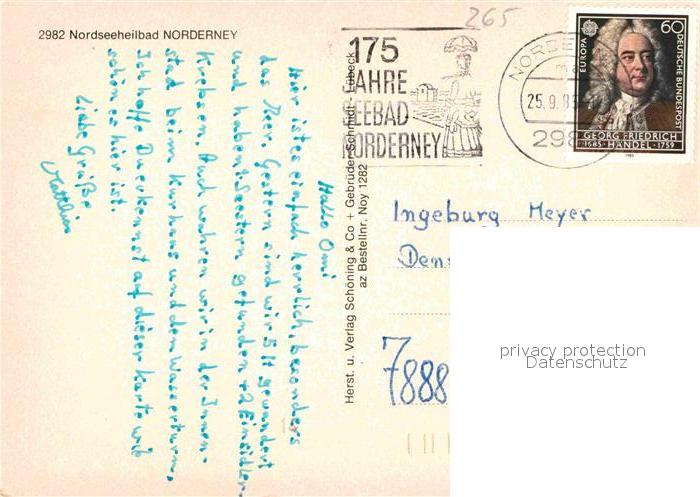 2982 Nordseeheilbad NORDERNEY
265
175
JAHRE
SEEBAD
NORDERNEY
NORDE
25.9.8
298
EUROPA
60
DEUTSCHE BUNDESPOST
GEORG FRIEDRICH
1685 · HÄNDEL · 1759
Herst. u. Verlag Schöning & Co + Gebrüder Schmidt - Lübeck
az Bestellnr. Noy 1282
Hallo Omi
Hier ist es einfach herrlich, besonders
das Meer. Gestern sind wir 5 H gewandert
und haben Seestern gefunden + 2 Einsidler-
Krebsen. Auch wahren wir in der Innen-
stad beim Kurhaus und den Wasserturm.
Ich hoffe Du erkennst auf dieser Karte wie
schön es hier ist.
Liebe Grüße
Ingeburg Meyer
7888
privacy protection
Datenschutz